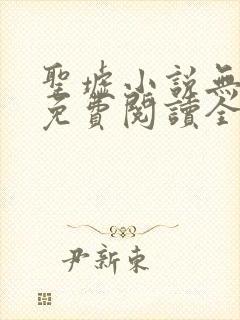 聖墟小說無
免費閱讀全
尹新東